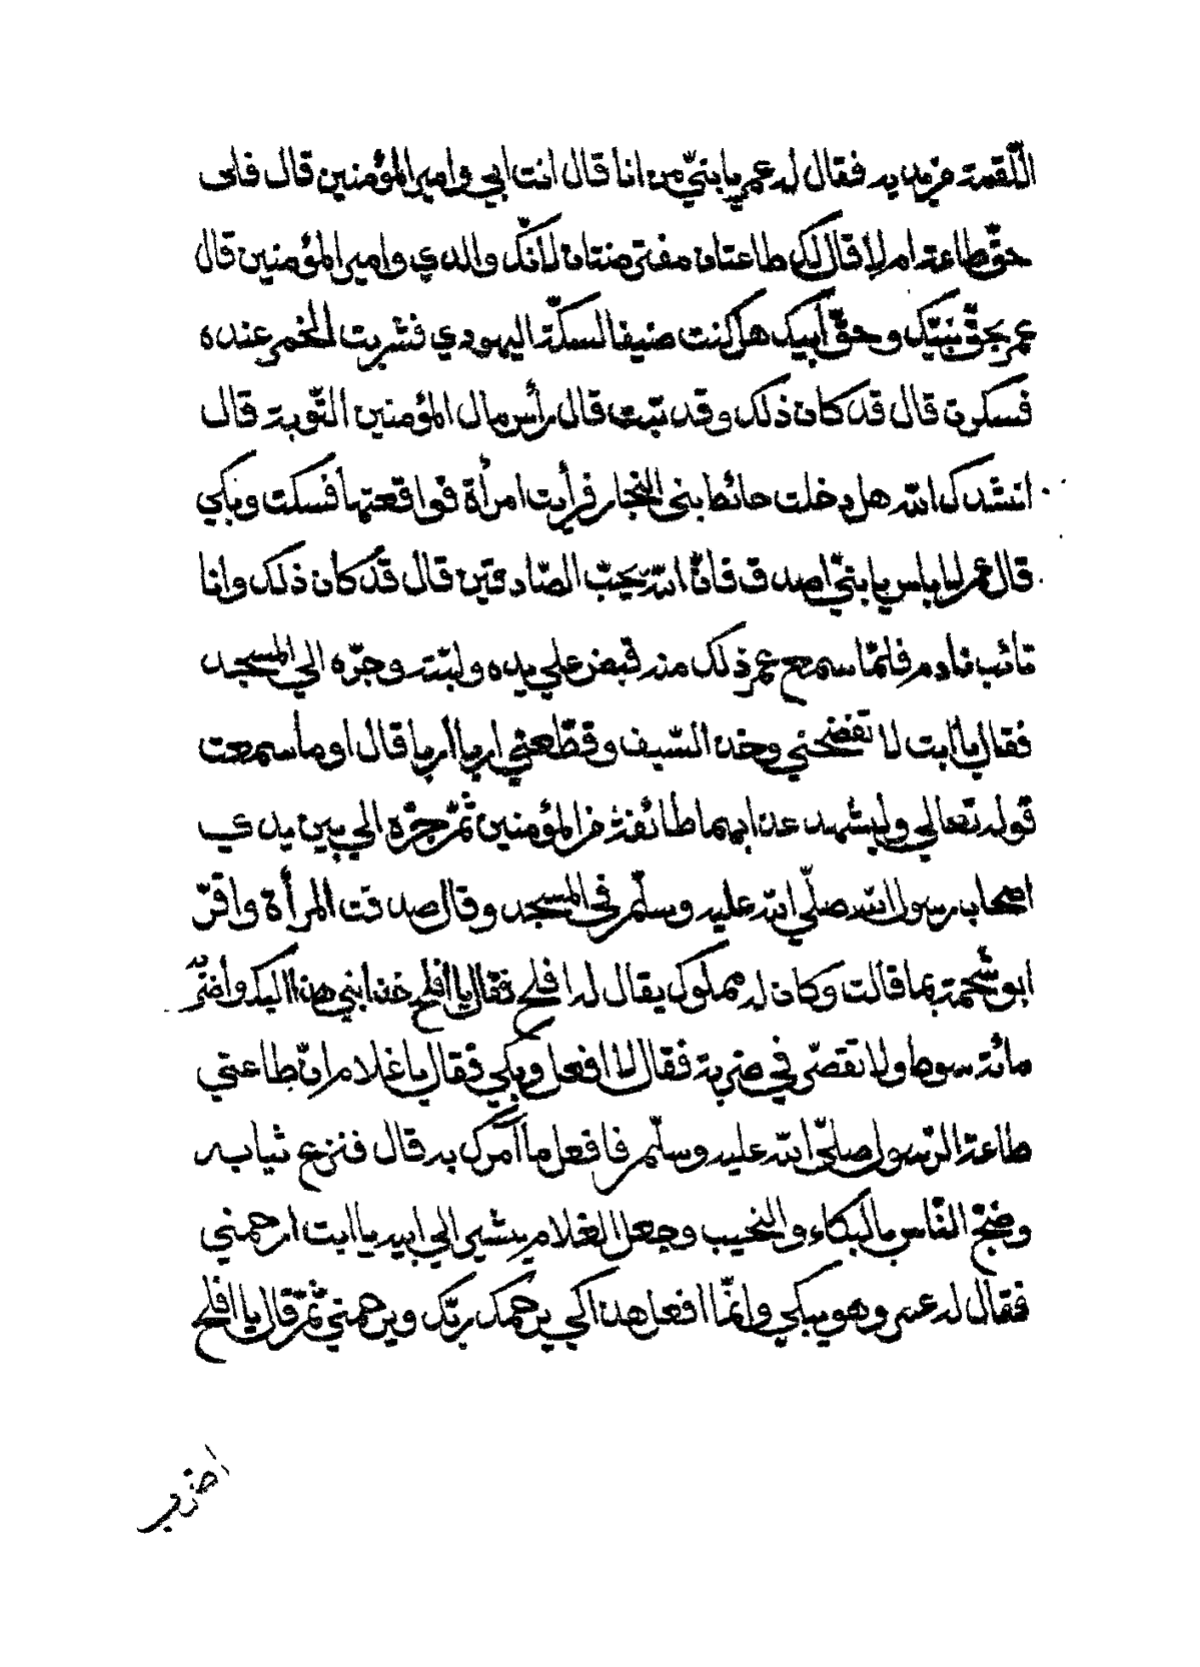 اللّقمة من يده فقال له عمر يا بنيّ من انا قال انت ابي وامير المؤمنين قال فلى
حقّ طاعة ام لا قال لك طاعتان مفترضتان لانّك والدي وامير المؤمنين قال
عمر بحقّ نبيّك وحقّ أبيك هل كنت ضيفا لسكّة اليهودي فشربت الخمر عنده
فسكرت قال قد كان ذلك وقد تبت قال رأس مال المؤمنين التّوبة قال
انشدك الله هل دخلت حائط بنى النجار فرأيت امرأة فواقعتها فسكت وبكي
قال عمر لا باس يا بنيّ اصدق فانّ الله يحبّ الصّادقين قال قد كان ذلك وانا
تائب نادم فلمّا سمع عمر ذلك منه قبض علي يده ولبّته وجرّه الي المسجد
فقال يا أبت لا تفضحني وخذ السّيف وقطّعني اربا أربا قال اوما سمعت
قوله تعالي وليشهد عذابهما طائفة من المؤمنين ثمّ جرّه الي بين يدي
اصحاب رسول الله صلّي الله عليه وسلّم في المسجد وقال صدقت المرأة واقرّ
ابو شحمة بما قالت وكان له مملوك يقال له افلح فقال يا افلح خذ ابني هذا اليك وأضربه
مائة سوط ولا تقصّر في ضربة فقال لا افعل وبكي فقال يا غلام انّ طاعتي
طاعة الرّسول صلّي الله عليه وسلّم فافعل ما آمرك به قال فنزع ثيابه
وضجّ النّاس بالبكاء والنحيب وجعل الغلام يشير الي ابيه يا ابت ارحمني
فقال له عمر وهو يبكي وانّما افعل هذا كي يرحمك ربّك ويرحمني ثمّ قال يا افلح
اضربه